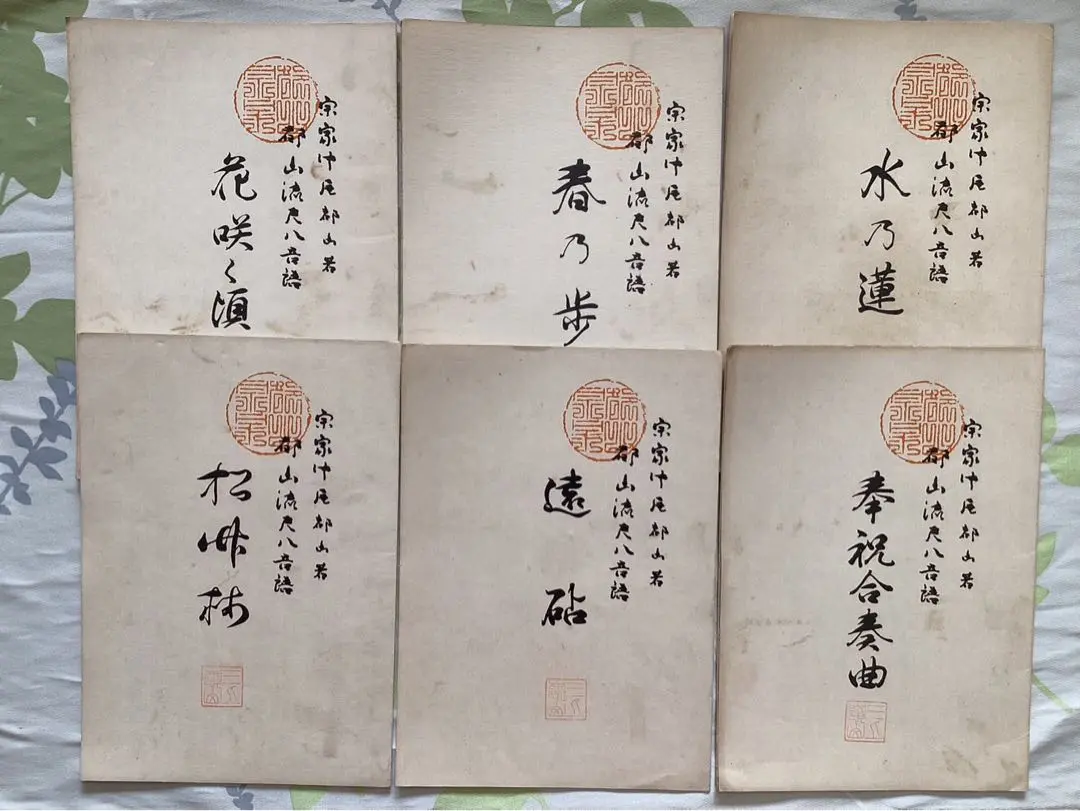 宗家中尾都山著
都山流尺八音譜
花咲く頃
宗家中尾都山著
都山流尺八音譜
春乃歩
宗家中尾都山著
都山流尺八音譜
水乃蓮
宗家中尾都山著
都山流尺八音譜
松竹梅
宗家中尾都山著
都山流尺八音譜
遠砧
宗家中尾都山著
都山流尺八音譜
奉祝合奏曲